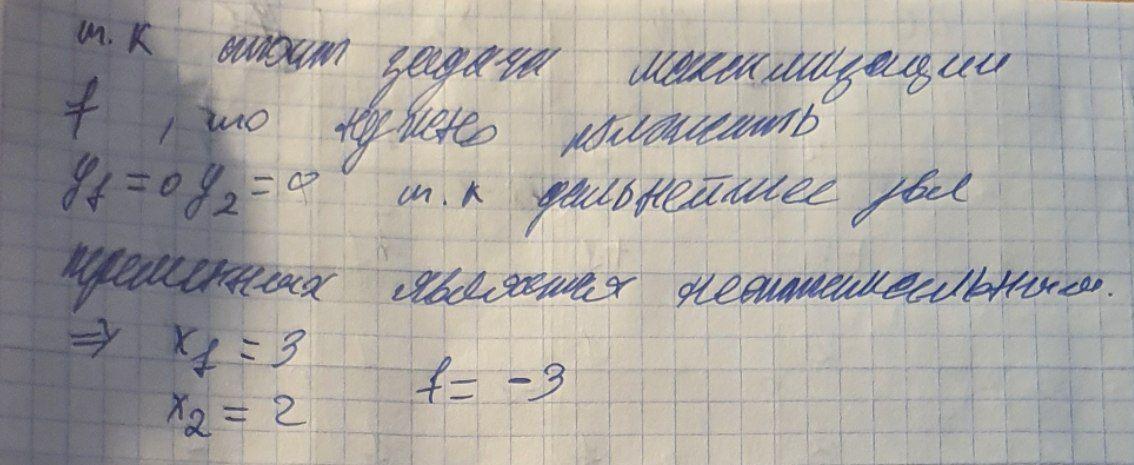 т.к стоит задача максимизации
f , то нужно положить
y₁ = 0 y₂ = 0 т.к дальнейшее увел
переменных является неоптимальным.
⇒ x₁ = 3
f = -3
x₂ = 2